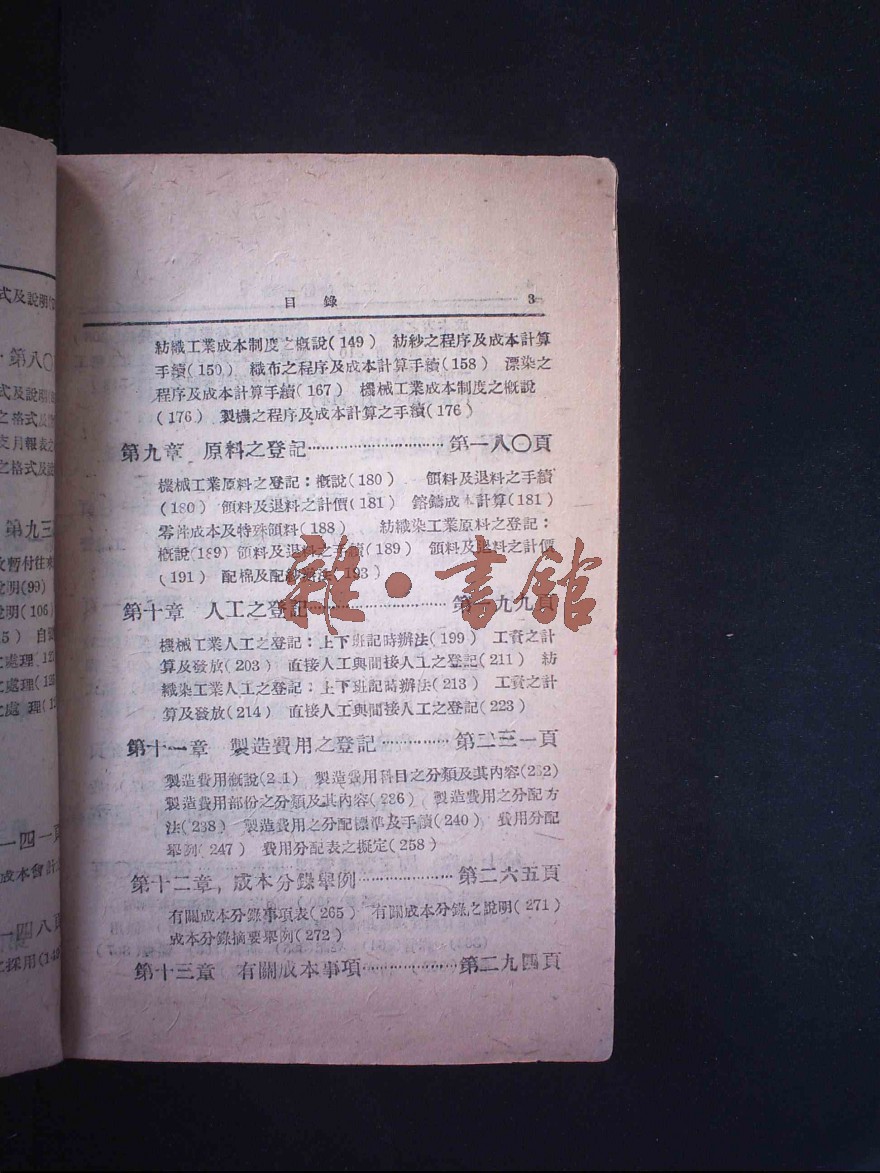 目錄 3
紡織工業成本制度之概說(149) 紡紗之程序及成本計算
手續(150) 織布之程序及成本計算手續(158) 漂染之
程序及成本計算手續(167) 機械工業成本制度之概說
(176) 製機之程序及成本計算之手續(176)
第九章 原料之登記……第一八〇頁
機械工業原料之登記：概說(180) 領料及退料之手續
(180) 領料及退料之計價(181) 鎔鑄成本計算(181)
零件成本及特殊領料(188) 紡織染工業原料之登記：
概說(189) 領料及退料之手續(189) 領料及退料之計價
(191) 配棉及配紗辦法(193)
第十章 人工之登記……第一九九頁
機械工業人工之登記：上下班記時辦法(199) 工資之計
算及發放(203) 直接人工與間接人工之登記(211) 紡
織染工業人工之登記：上下班記時辦法(213) 工資之計
算及發放(214) 直接人工與間接人工之登記(223)
第十一章 製造費用之登記……第二三一頁
製造費用概說(231) 製造費用科目之分類及其內容(232)
製造費用部份之分類及其內容(236) 製造費用之分配方
法(238) 製造費用之分配標準及手續(240) 費用分配
舉列(247) 費用分配表之擬定(258)
第十二章 成本分錄舉例……第二六五頁
有關成本分錄事項表(265) 有關成本分錄之說明(271)
成本分錄摘要舉例(272)
第十三章 有關成本事項……第二九四頁
式及說明
第八〇
式及說明
之格式及
支月報表之
之格式及說
第九三
暫付往來
說明(99)
說明(106
5) 自
處理
之處理(
之處理(1
一四一頁
成本會計
一四八頁
之採用(14
雜·書館